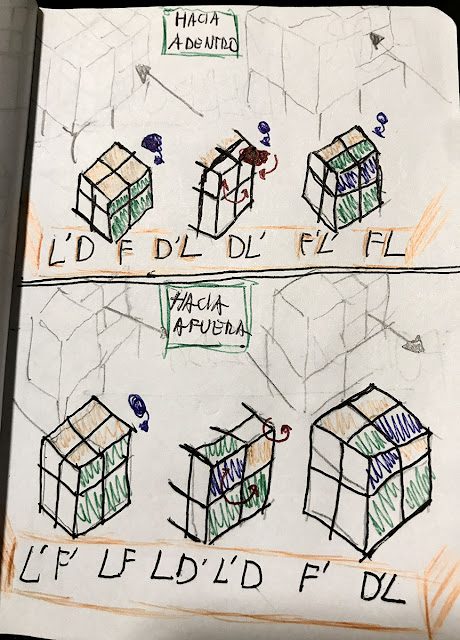 HACIA
ADENTRO
L'D F D'L DL' F'L' FL
HACIA
AFUERA
L'F' LF LD' L'D F' D'L